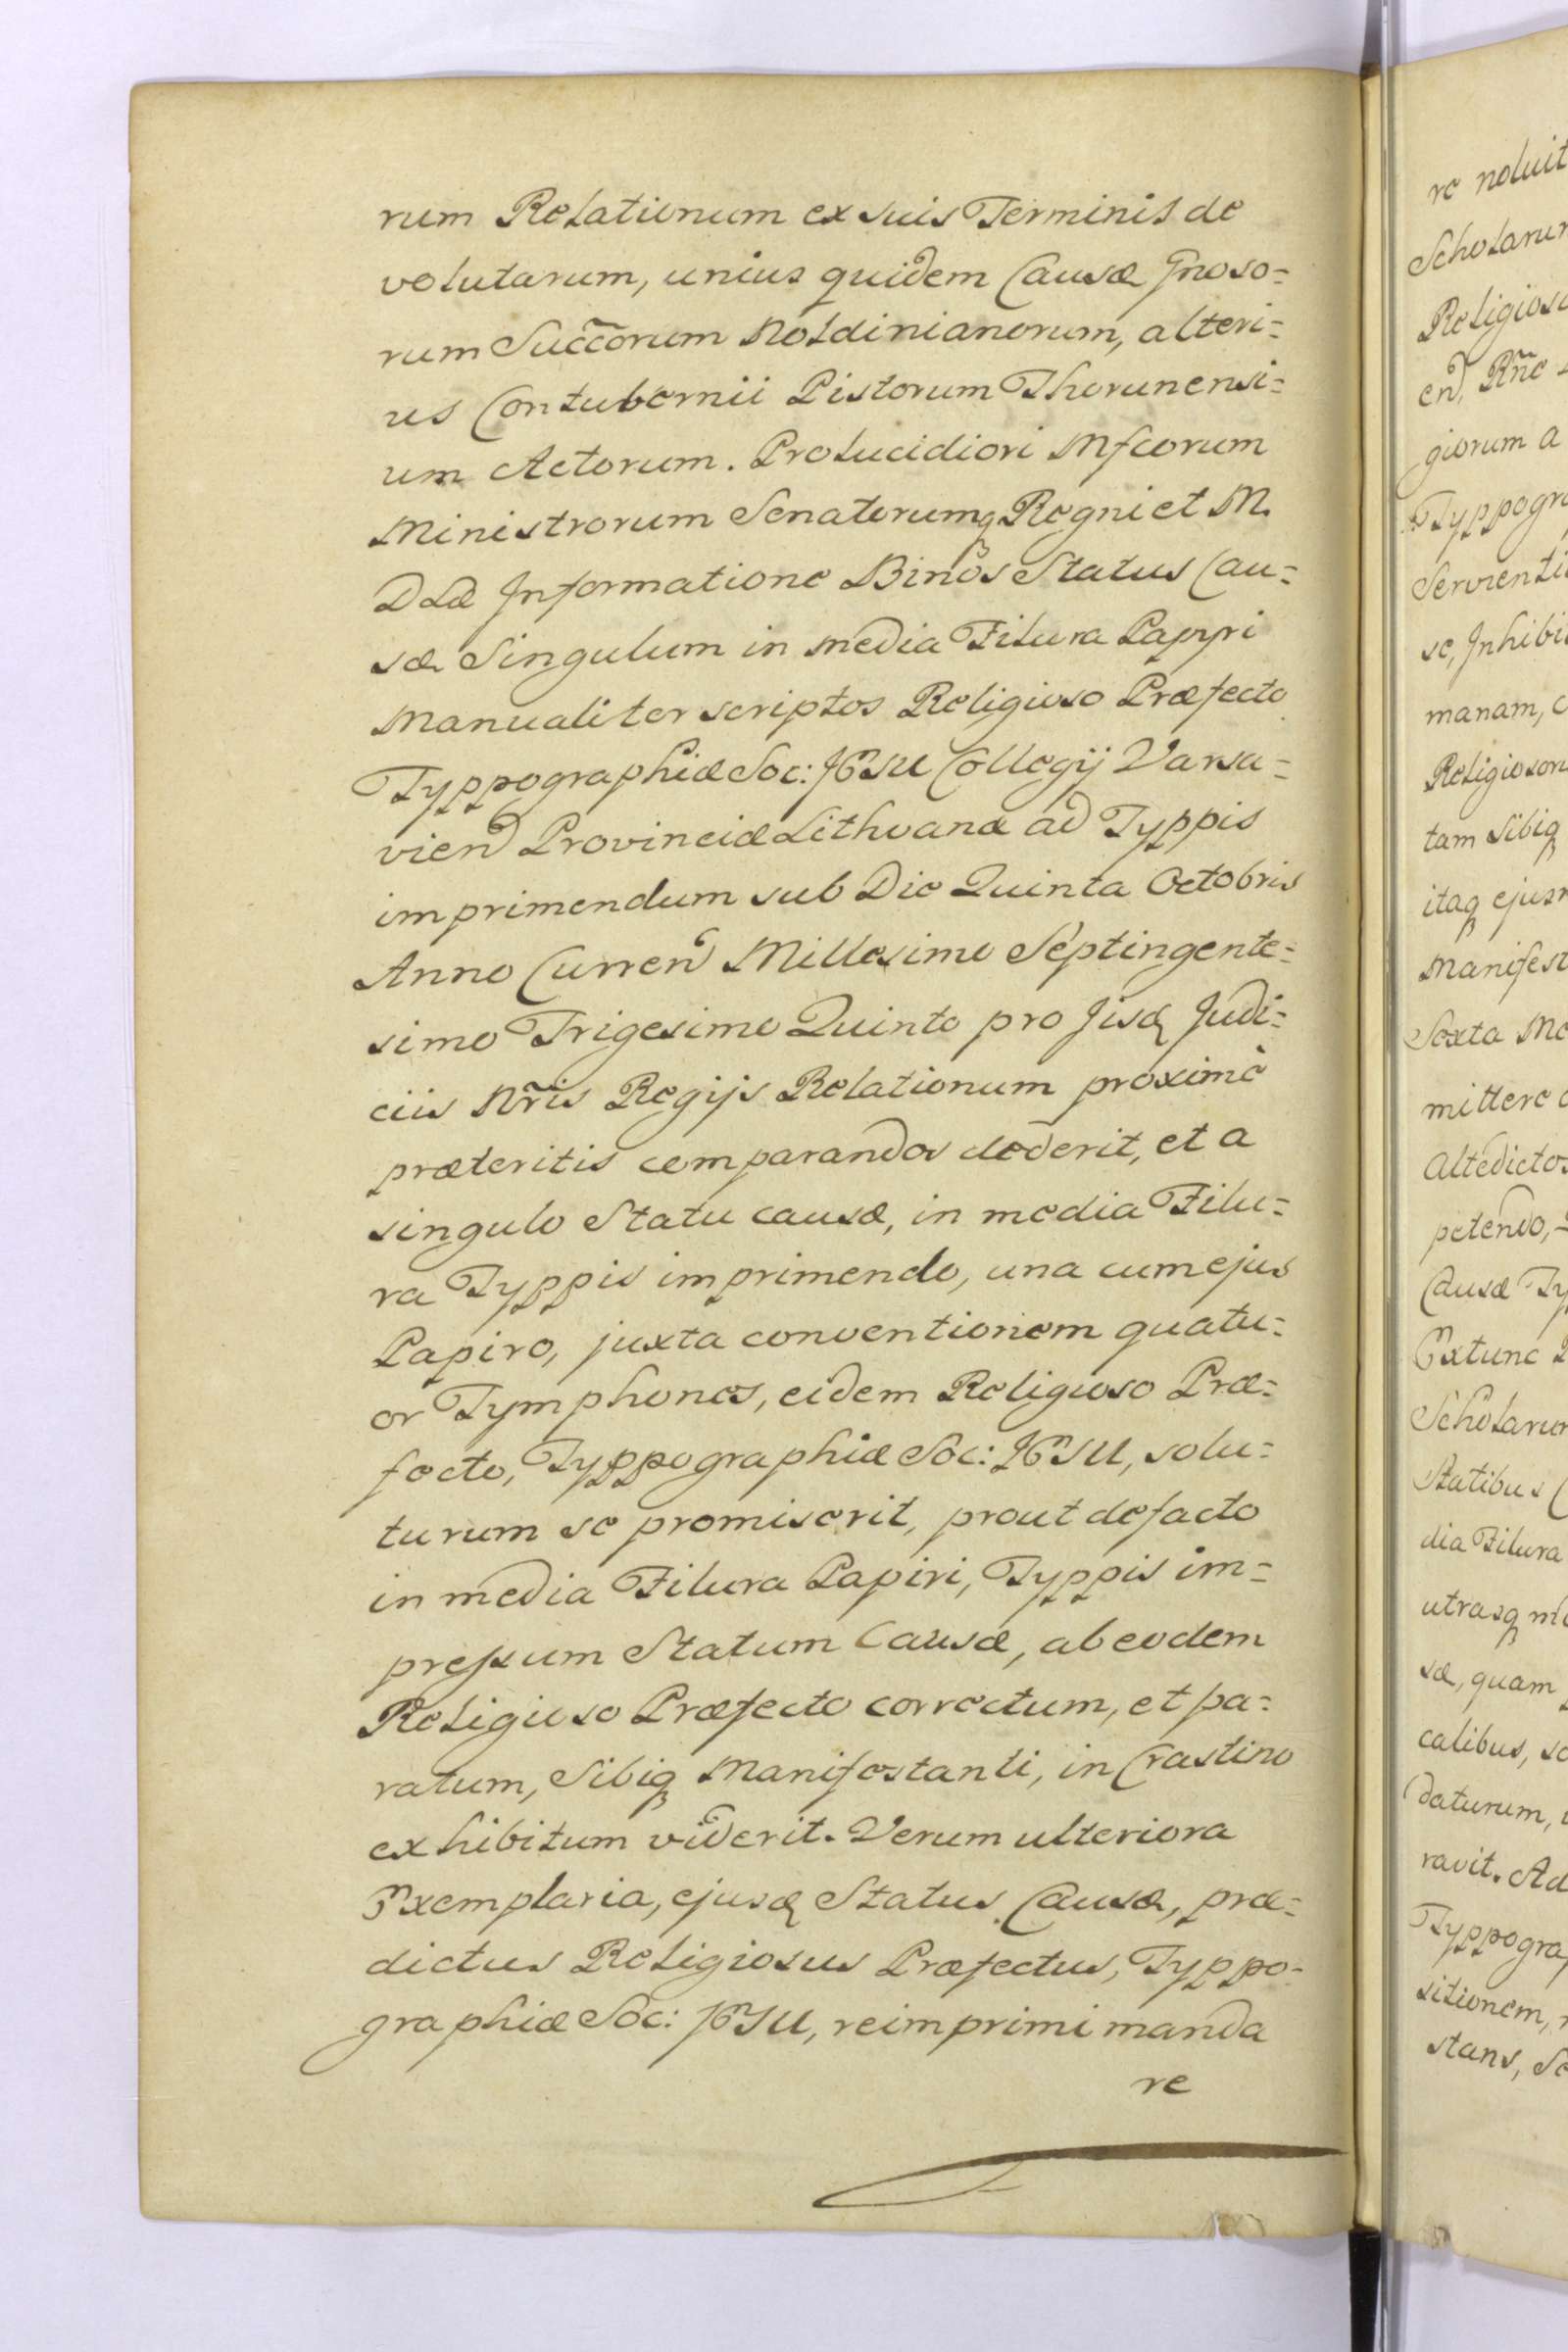 rum Relationum ex suis Terminis de
volutarum, unius quidem Causæ Gnoso=
rum Succ̃orum Noldinianorum, alteri=
us Contubernii Pistorum Thorunensi=
um Actorum. Pro lucidiori Mfcorum
Ministrorum Senatorumq Regni et M.
D Læ Informatione Binos Status Cau=
sæ Singulum in media Filura Papyri
Manualiter scriptos Religioso Præfecto
Typpographiæ Soc: JESU Collegij Varsa=
vien Provinciæ Lithvanæ ad Typpis
imprimendum sub Die Quinta Octobris
Anno Curren Millesimo Septingente=
simo Trigesimo Quinto pro Jisd Judi=
ciis Nr̃is Regijs Relationum proximè
præteritis comparandos dederit, et a
singulo Statu causæ, in media Filu=
ra Typpis imprimendo, una cum ejus
Papiro, juxta conventionem quatu=
or Tymphones, eidem Religioso Præ=
fecto, Typpographiæ Soc: JESU, solu=
turum se promiserit, prout defacto
in media Filura Papiri, Typpis im=
pressum Statum Causæ, ab eodem
Religioso Præfecto correctum, et pa=
ratum, Sibiq Manifestanti, in Crastino
exhibitum viderit. Verum ulteriora
Exemplaria, ejusd Status Causæ, præ=
dictus Religiosus Præfectus, Typpo=
graphiæ Soc: JESU, reimprimi manda
re
re noluit
Scholarum
Religios
en, Rñe
giorum a
Typpogr
Servienti
se, Inhibi
manam,
Religioson
tam Sibiq
itaq ejus
Manifest
Sexta Me
mittere
Altedictos
petendo,
Causæ Ty
Extunc
Scholarum
Statibus
dia Filura
utrasq
sæ, quam
calibus, se
daturum,
ravit. Ad
Typpogra
sitionem,
stans, Se